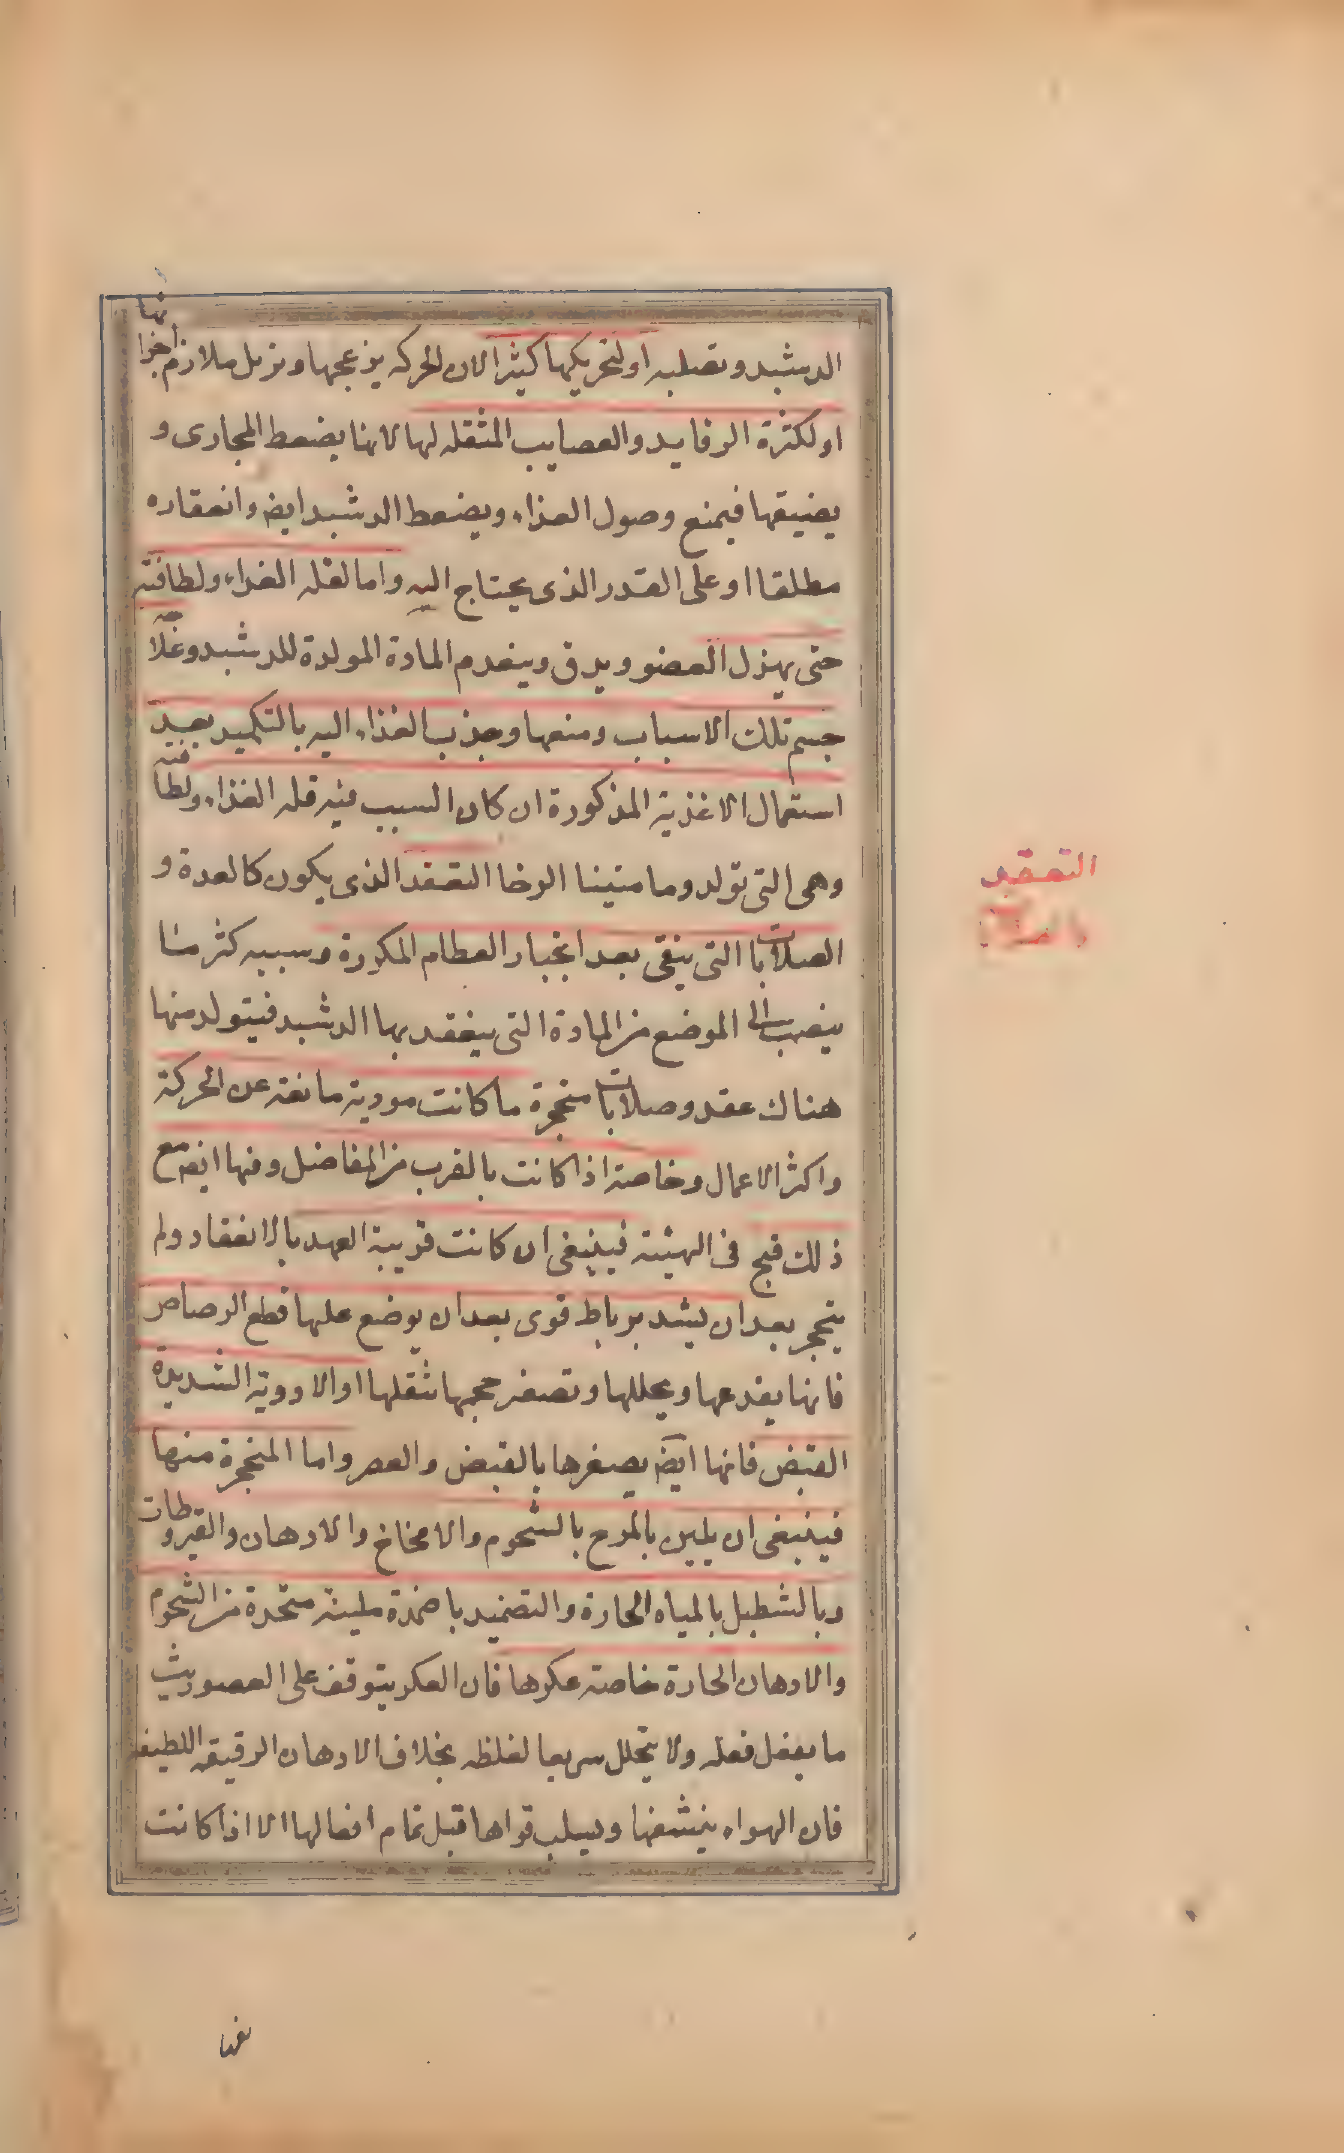 الدشبد وتصلبه او لتحريكها كثيرا لان الحركه يزعجها ويزيل ملازم اجزائها
او لكثرة الرفايد والعصايب المثقله لها لانها يضعط المجارى و
يضيقها فيمنع وصول العذاء ويضعط الدشبد ايض وانعقاده
مطلقا او على القدر الذى يحتاج اليه واما لقله الغداء ولطافته
حتى يهزل العضو ويدق وينعدم المادة المولدة للدشبد وعلاجه
حسم تلك الاسباب ومنعها وجذب الغذاء اليه بالتكميد بعد
استعمال الاغذية المذكورة ان كان السبب فيه قله الغذاء ولطافته
وهى التى تولد وما متينا الوخا التعقد الذى يكون كالعدة و
الصلابات التى يبقى بعد انجبار العطام المكسورة وسببه كثر منا
ينصب الى الموضع من المادة التى ينعقد بها الدشبد فيتولد منها
هناك عقد وصلابات متحجرة ما كانت مودية مانعة عن الحركة
واكثر الاعمال وخاصة اذا كانت بالقرب من المفاصل وفيها ايض مع
ذلك قبح فى الهيئة فينبغى ان كانت قريبة العهد بالانعقاد ولم
يتحجر بعد ان يشد برباط قوى بعد ان يوضع عليها قطع الرصاص
فانها يفدعها ويحللها وتصغر حجمها بثقلها او الادوية الشديدة
القبض فانها ايض يصغرها بالقبض والعصر واما المتحجرة منها
فينبغى ان يلين بالمرح بالشحوم والامخاخ والادهان والقيروطات
وبالشطيل بالمياه الحارة والتضميد باضمدة ملينة متخدة من الشحوم
والادهان الحارة خاصة عكرها فان العكر يتوقف على العضو ريث
ما يفعل فعله ولا يتحلل سريعا لغلظه بخلاف الادهان الرقيقه اللطيفه
فان الهواء ينشفها ويسلب قواها قبل تمام افعالها الا اذا كانت
التعقد